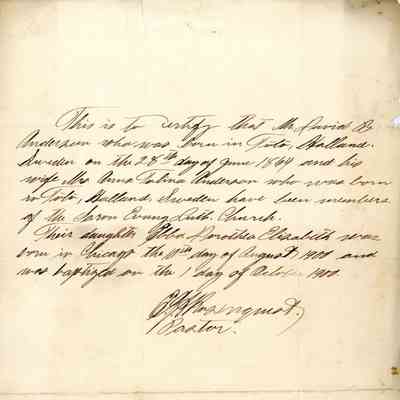 This is to certify that Mr David B
Anderson who was born in Toto, Halland.
Sweden on the 28th day of June 1864 and his
wife Mrs Anna Talina Anderson who was born
in Toto, Halland, Sweden have been members
of the Saron Evang Luth. Church.
Their daughter Ebba Dorothea Elizabeth was
born in Chicago the day of August 1900 and
was baptized on the 1 day of October 1900.
Rosenquist.
Pastor.